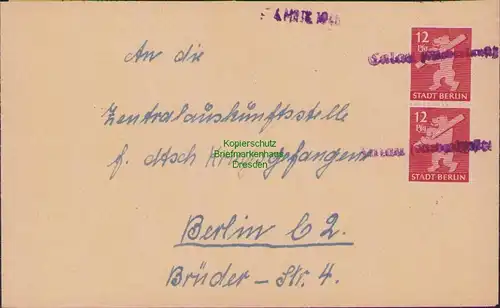 4. MRZ. 1946
12
Pfg
STADT BERLIN
12
Pfg
STADT BERLIN
An die
Zentralauskunftsstelle
f. dtsch Kriegsgefangene
Berlin C 2.
Brüder-Str. 4.
Kopierschutz
Briefmarkenhaus
Dresden